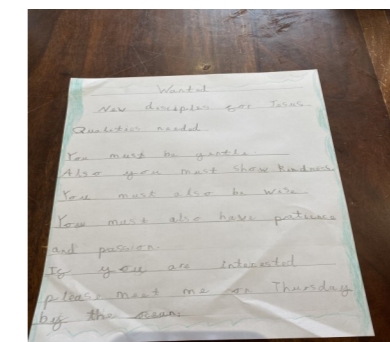 Wanted
New disciples for Jesus
Qualities needed
You must be gentle
Also you must show kindness
You must also be wise
You must also have patience
and passion
If you are interested
please meet me on Thursday
by the ocean.